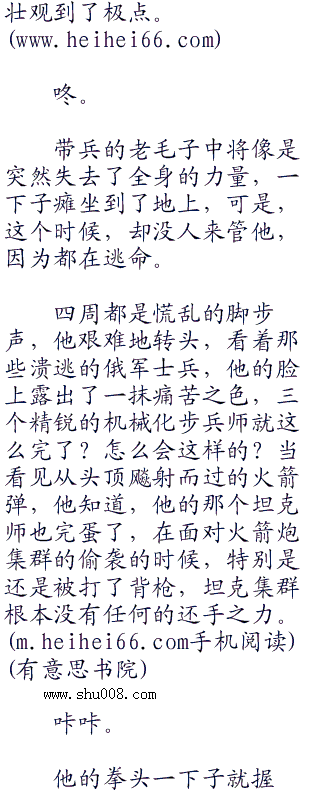 壮观到了极点。
(www.heihei66.com)
咚。
带兵的老毛子中将像是
突然失去了全身的力量，一
下子瘫坐到了地上，可是，
这个时候，却没人来管他，
因为都在逃命。
四周都是慌乱的脚步
声，他艰难地转头，看着那
些溃逃的俄军士兵，他的脸
上露出了一抹痛苦之色，三
个精锐的机械化步兵师就这
么完了？怎么会这样的？当
看见从头顶飚射而过的火箭
弹，他知道，他的那个坦克
师也完蛋了，在面对火箭炮
集群的偷袭的时候，特别是
还是被打了背枪，坦克集群
根本没有任何的还手之力。
(m.heihei66.com手机阅读)
(有意思书院)
www.shu008.com
咔咔。
他的拳头一下子就握